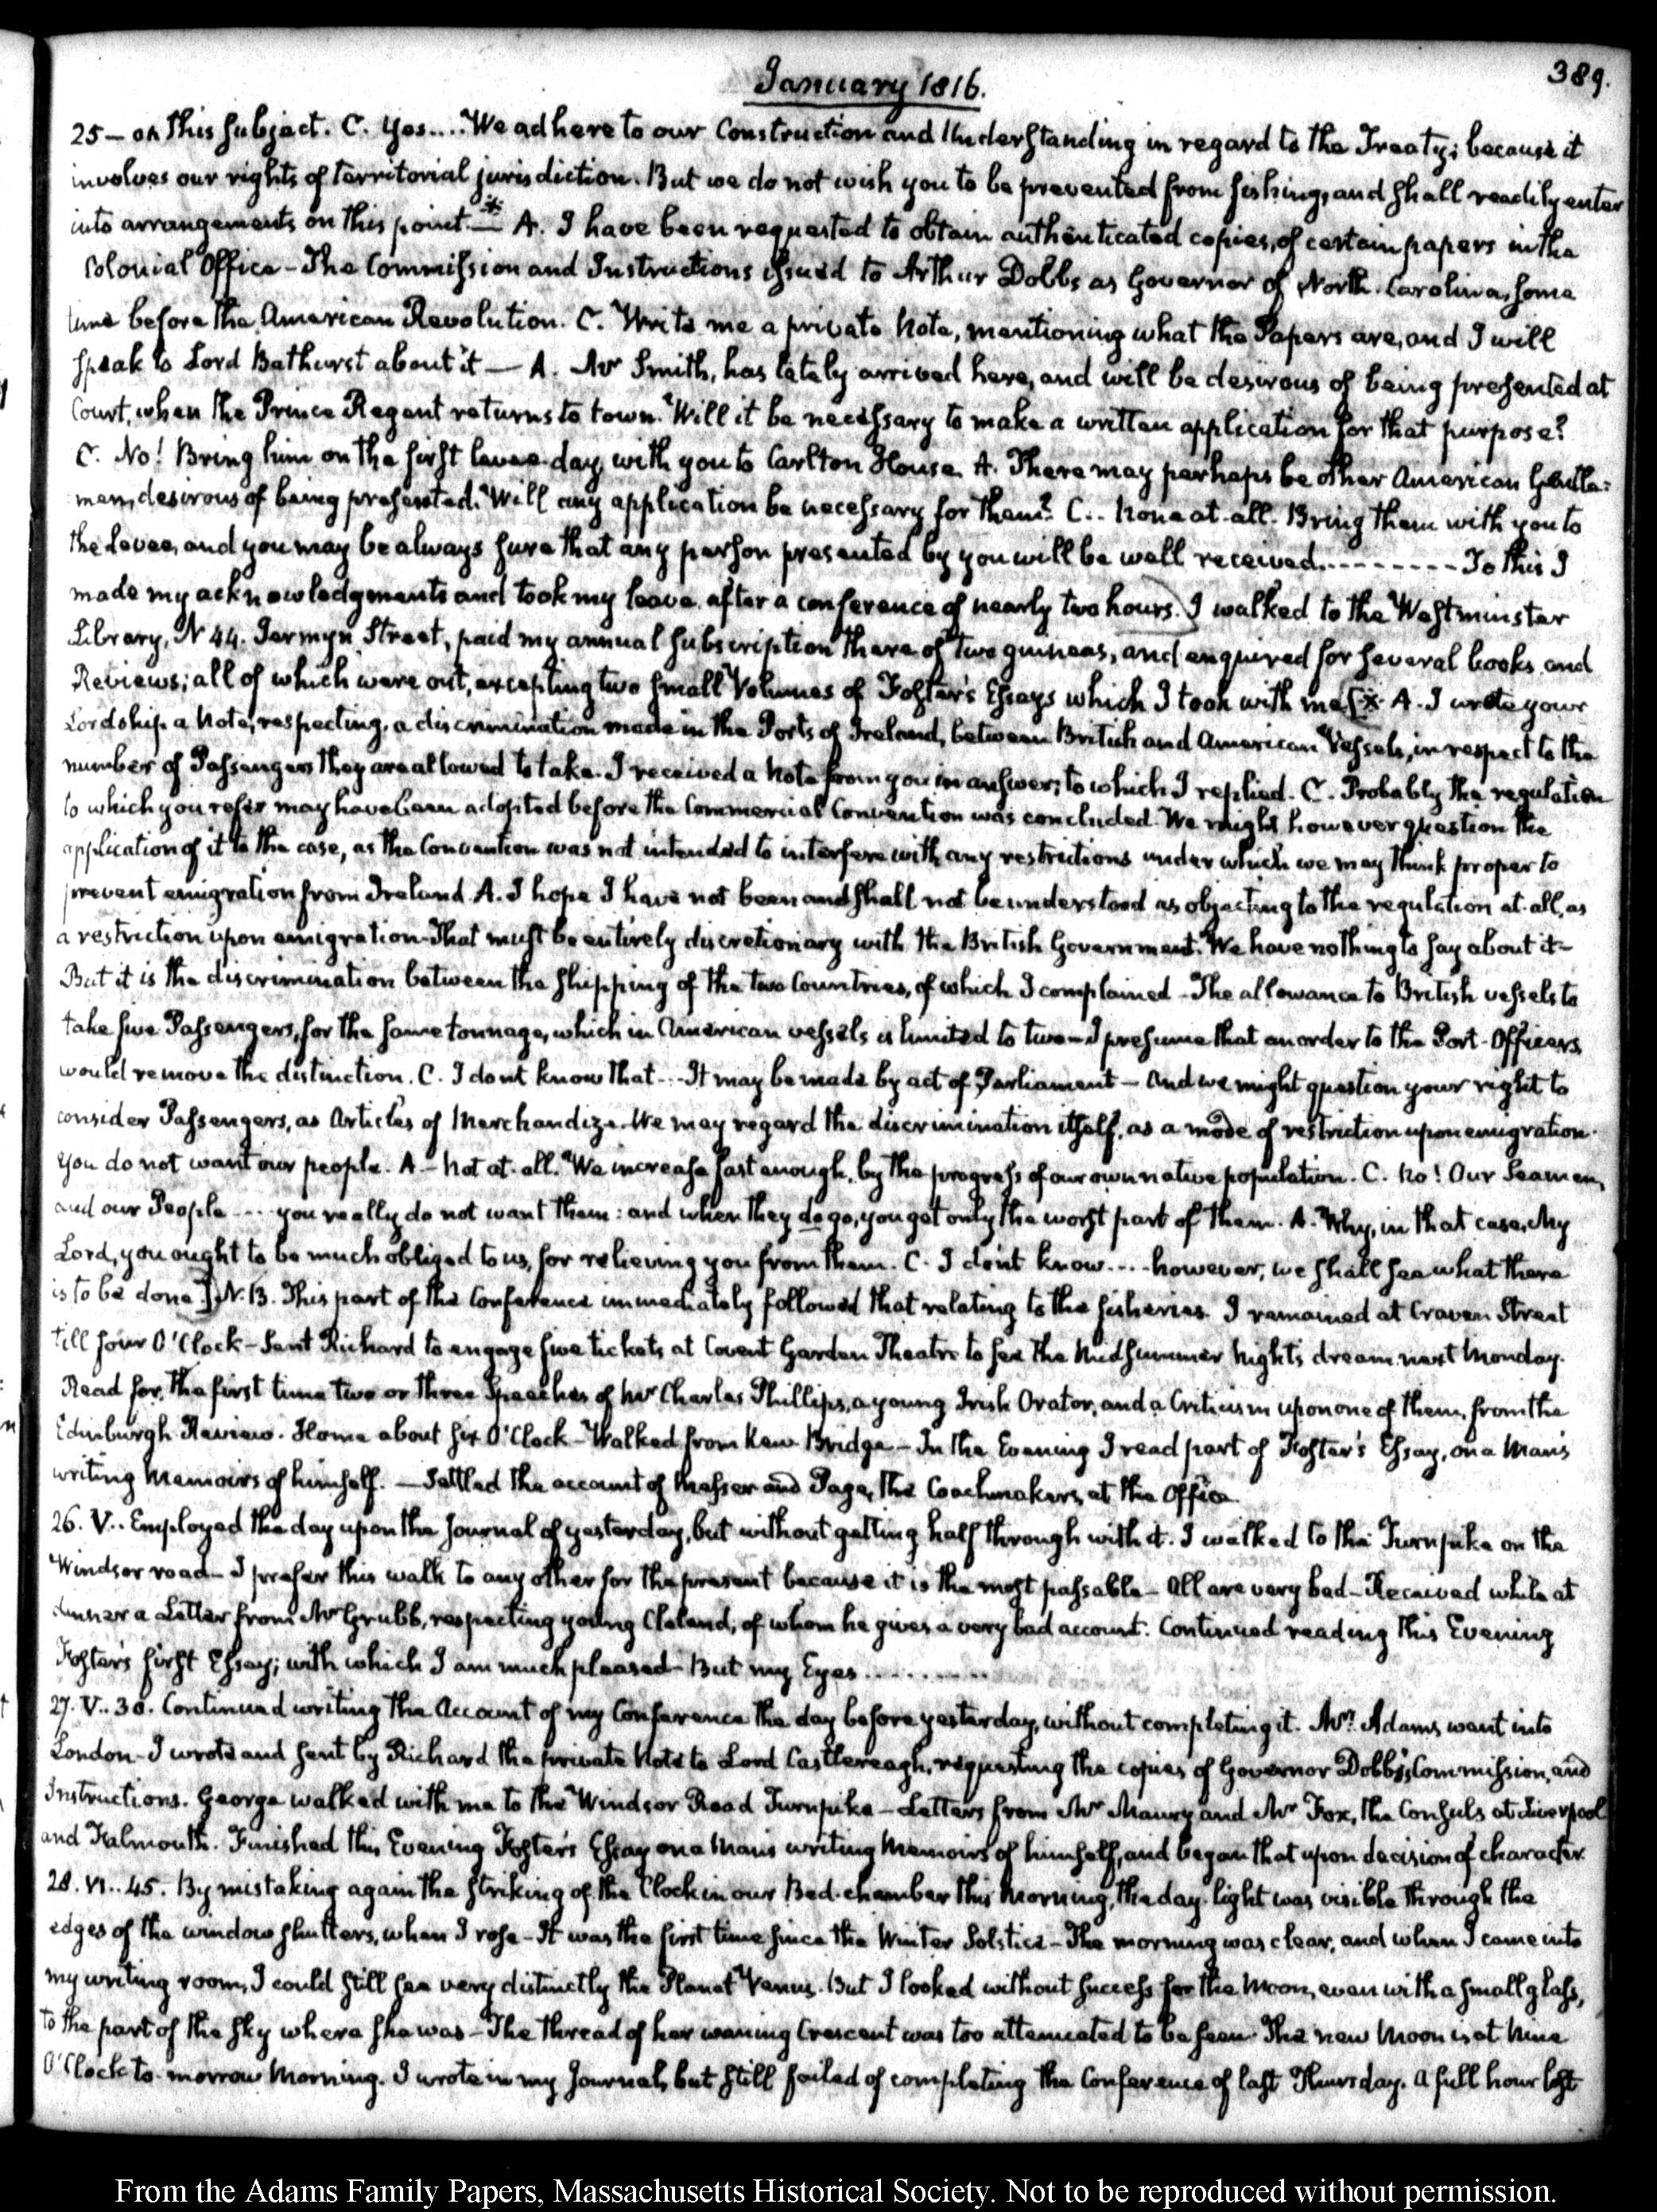 January 1816.
389.
25 – on this subject. C. Yes.... We adhere to our Construction and Understanding in regard to the Treaty; because it
involves our rights of territorial jurisdiction. But we do not wish you to be prevented from fishing, and shall readily enter
into arrangements on this point.* — A. I have been requested to obtain authenticated copies, of certain papers in the
Colonial Office – The Commission and Instructions issued to Arthur Dobbs as Governor of North-Carolina, some
time before the American Revolution. C. Write me a private Note, mentioning what the Papers are, and I will
speak to Lord Bathurst about it — A. Mr Smith, has lately arrived here, and will be desirous of being presented at
Court, when the Prince Regent returns to town. Will it be necessary to make a written application for that purpose?
C. No! Bring him on the first levee day, with you to Carlton House. A. There may perhaps be other American Gentle=
men, desirous of being presented. Will any application be necessary for them? C.. None at-all. Bring them with you to
the Levee, and you may be always sure that any person presented by you will be well received......... To this I
made my acknowledgments and took my leave, after a conference of nearly two hours. I walked to the Westminster
Library, N 44. Jermyn Street, paid my annual subscription there of two guineas, and enquired for several books and
Reviews; all of which were out, excepting two small Volumes of Foster's Essays which I took with me [* A. I wrote your
Lordship a Note, respecting, a discrimination made in the Ports of Ireland, between British and American Vessels, in respect to the
number of Passengers they are allowed to take. I received a Note from you in answer; to which I replied. C. Probably the regulation
to which you refer may have been adopted before the Commercial Convention was concluded. We might however question the
application of it to the case, as the Convention was not intended to interfere with any restrictions under which we may think proper to
prevent emigration from Ireland. A. I hope I have not been and shall not be understood as objecting to the regulation at-all, as
a restriction upon emigration. That must be entirely discretionary with the British Government. We have nothing to say about it –
But it is the discrimination between the shipping of the two Countries, of which I complained – The allowance to British vessels to
take five Passengers, for the same tonnage, which in American vessels is limited to two – I presume that an order to the Port-Officers,
would remove the distinction. C. I dont know that... It may be made by act of Parliament – And we might question your right to
consider Passengers, as Articles of Merchandize. We may regard the discrimination itself, as a mode of restriction upon emigration.
You do not want our people. A. – Not at-all. We increase fast enough, by the progress of our own native population. C. No! Our Seamen,
and our People .... you really do not want them: and when they do go, you get only the worst part of them. A. Why, in that case, My
Lord, you ought to be much obliged to us, for relieving you from them. C. I don't know.... however, we shall see what there
is to be done] N.B. This part of the Conference immediately followed that relating to the fisheries. I remained at Craven Street
till four O'Clock – Sent Richard to engage five tickets at Covent Garden Theatre to see the Midsummer nights dream, next Monday.
Read for, the first time two or three Speeches of Mr Charles Phillips, a young Irish Orator, and a Criticism upon one of them, from the
Edinburgh Review. Home about six O'Clock – Walked from Kew Bridge – In the Evening I read part of Foster's Essay, on a Man's
writing Memoirs of himself. — Settled the account of Messer and Page, the Coachmakers, at the Office.
26. V.. Employed the day upon the Journal of yesterday, but without getting half through with it. I walked to the Turnpike on the
Windsor road – I prefer this walk to any other for the present because it is the most passable – All are very bad – Received while at
dinner a Letter from Mr Grubb, respecting young Cleland, of whom he gives a very bad account. Continued reading this Evening
Foster's first Essay; with which I am much pleased – But my Eyes ..........
27. V.. 30. Continued writing the Account of my Conference the day before yesterday, without completing it. Mrs. Adams, went into
London – I wrote and sent by Richard the private Note to Lord Castlereagh, requesting the copies of Governor Dobbs's Commission, and
Instructions. George walked with me to the Windsor Road Turnpike – Letters from Mr Maury and Mr Fox, the Consuls at Liverpool
and Falmouth. Finished this Evening Foster's Essay on a Man's writing Memoirs of himself, and began that upon decision of character.
28. VI.. 45. By mistaking again the striking of the Clock in our Bed-chamber this Morning, the day-light was visible through the
edges of the window shutters, when I rose – It was the first time since the Winter Solstice – The morning was clear, and when I came into
my writing room, I could still see very distinctly the Planet Venus. But I looked without success for the Moon, even with a small glass,
to the part of the sky where she was – The thread of her waning Crescent was too attenuated to be seen. The new Moon is at Nine
O'Clock to-morrow Morning. I wrote in my Journal, but still failed of completing the Conference of last Thursday. A full hour lost
From the Adams Family Papers, Massachusetts Historical Society. Not to be reproduced without permission.